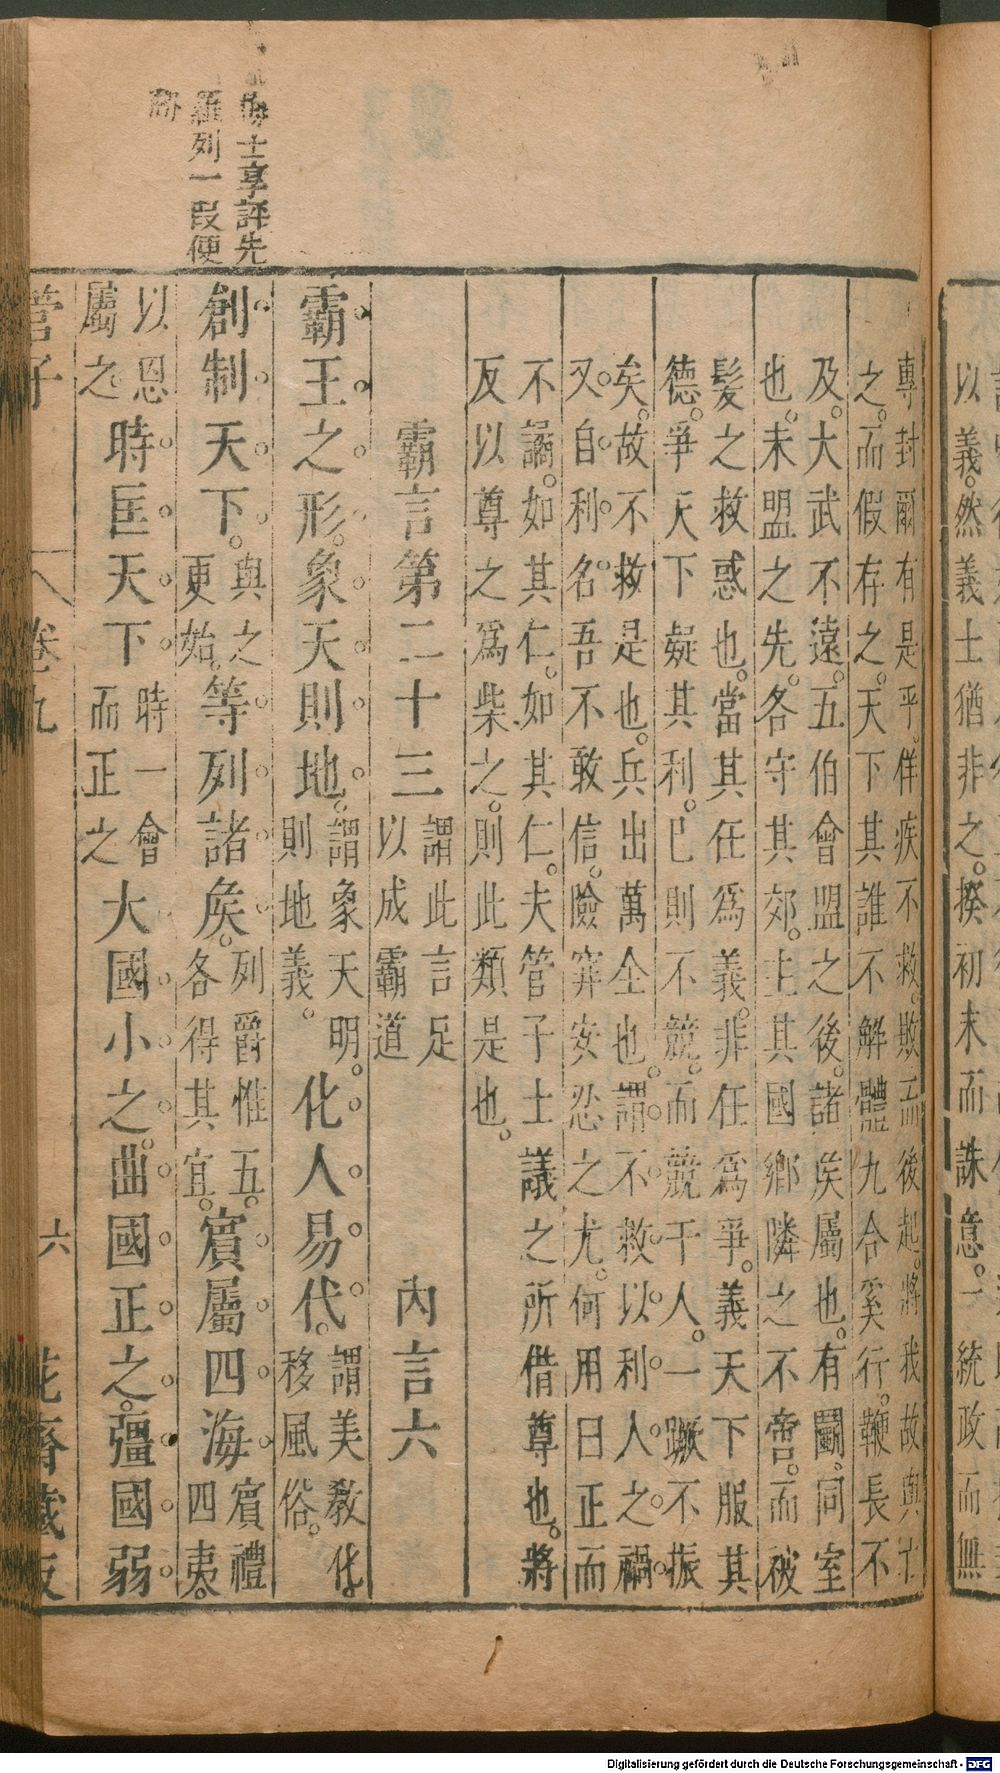 以義。然義士猶非之。揆初末而誅意。一統政而無
專封爾有是乎。佯疾不救。敗而後起。將我故與士
之。而假存之。天下其誰不解體。九合奚行。鞭長不
及。大武不遠。五伯會盟之後。諸矦屬也。有鬭。同室
也。未盟之先。各守其郊。主其國。鄉隣之不啻。而被
髮之救惑也。當其任爲義。非任爲爭。義天下服其
德。爭天下疑其利。已則不競。而競于人。一蹶不振
矣。故不救是也。兵出萬全也。謂不救以利人之禍。
又自利名。吾不敢信。險穽安忍之尤。何用曰正而
不譎。如其仁。如其仁。夫管子士議之所借尊也。將
反以尊之爲柴之。則此類是也。
霸言第二十三 謂此言足以成霸道 內言六
霸王之形。象天則地。謂象天明。則地義。化人易代。謂美教化。移風俗。
創制天下。與之更始。等列諸矦。列爵惟五。各得其宜。賓屬四海 賓禮四夷。
以恩屬之 時匡天下 時一會而正之 大國小之。曲國正之。彊國弱
管子 卷九 六 花齋藏板
士享評先
羅列一段便
Digitalisierung gefördert durch die Deutsche Forschungsgemeinschaft - DFG